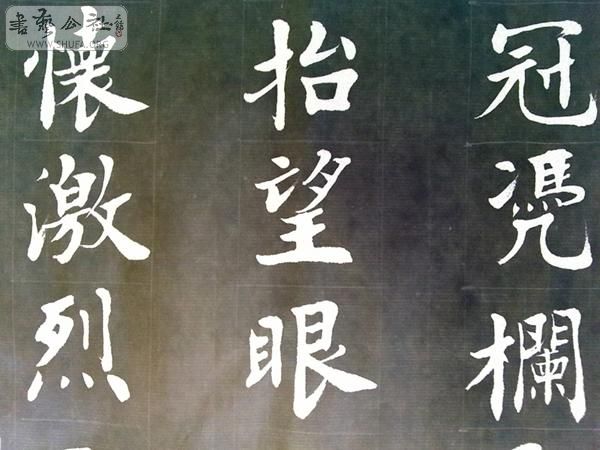 冠凭欄
抬望眼
懷激烈
書藝公社
WWW.SHUFA.ORG